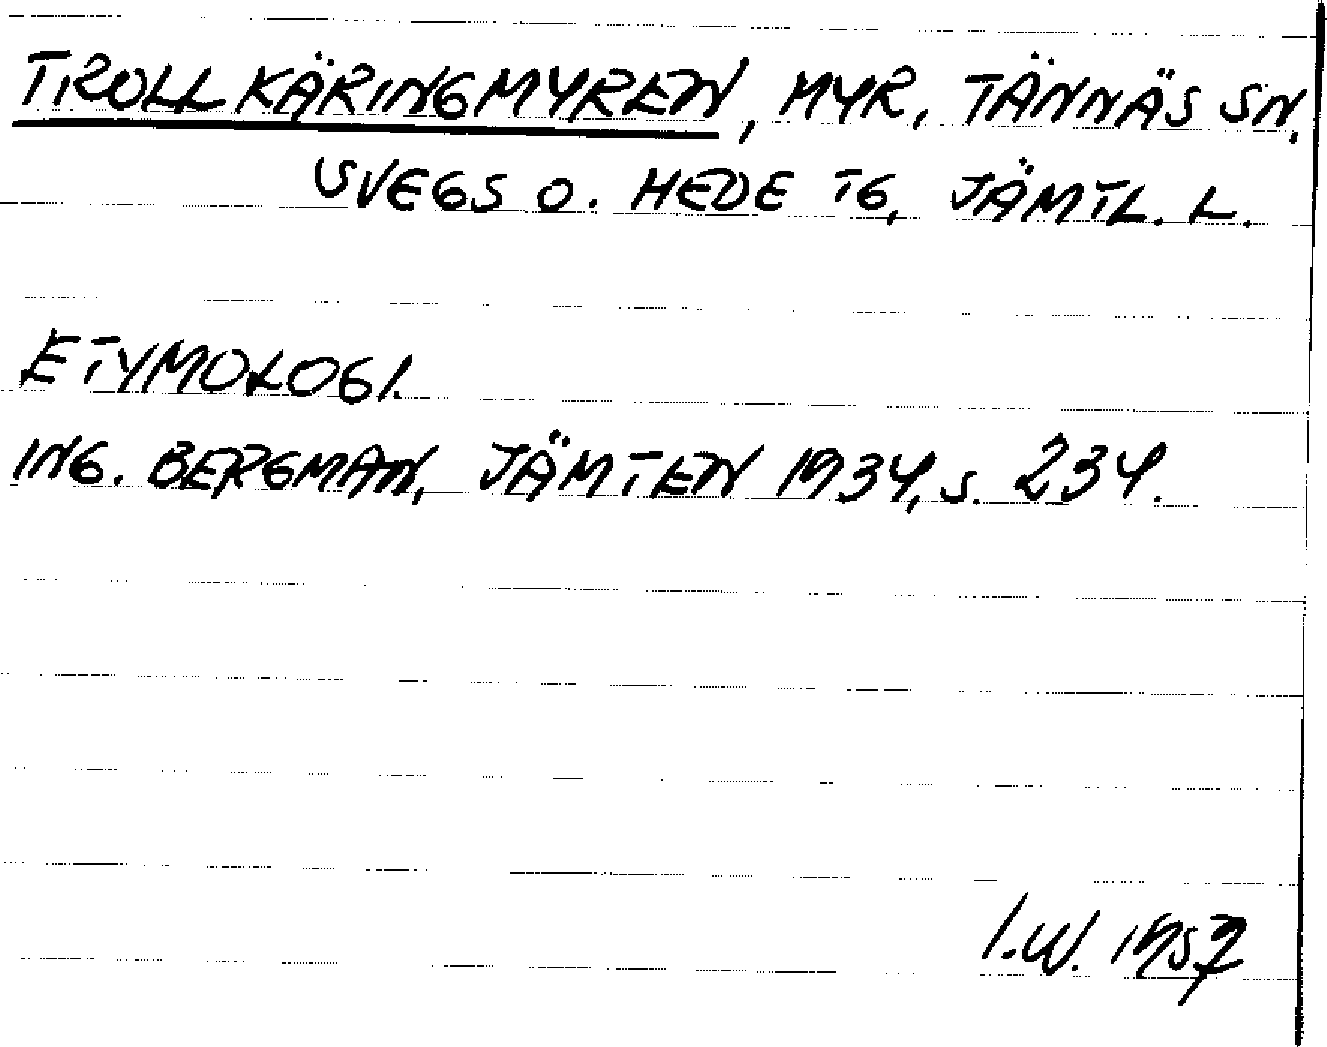 TROLLKÄRINGMYREN, MYR, TÄNNÄS SN,
SVEGS O. HEDE TG, JÄMTL. L.
ETYMOLOGI.
ING. BERGMAN, JÄMTEN 1934, S. 234.
I.W. 1957